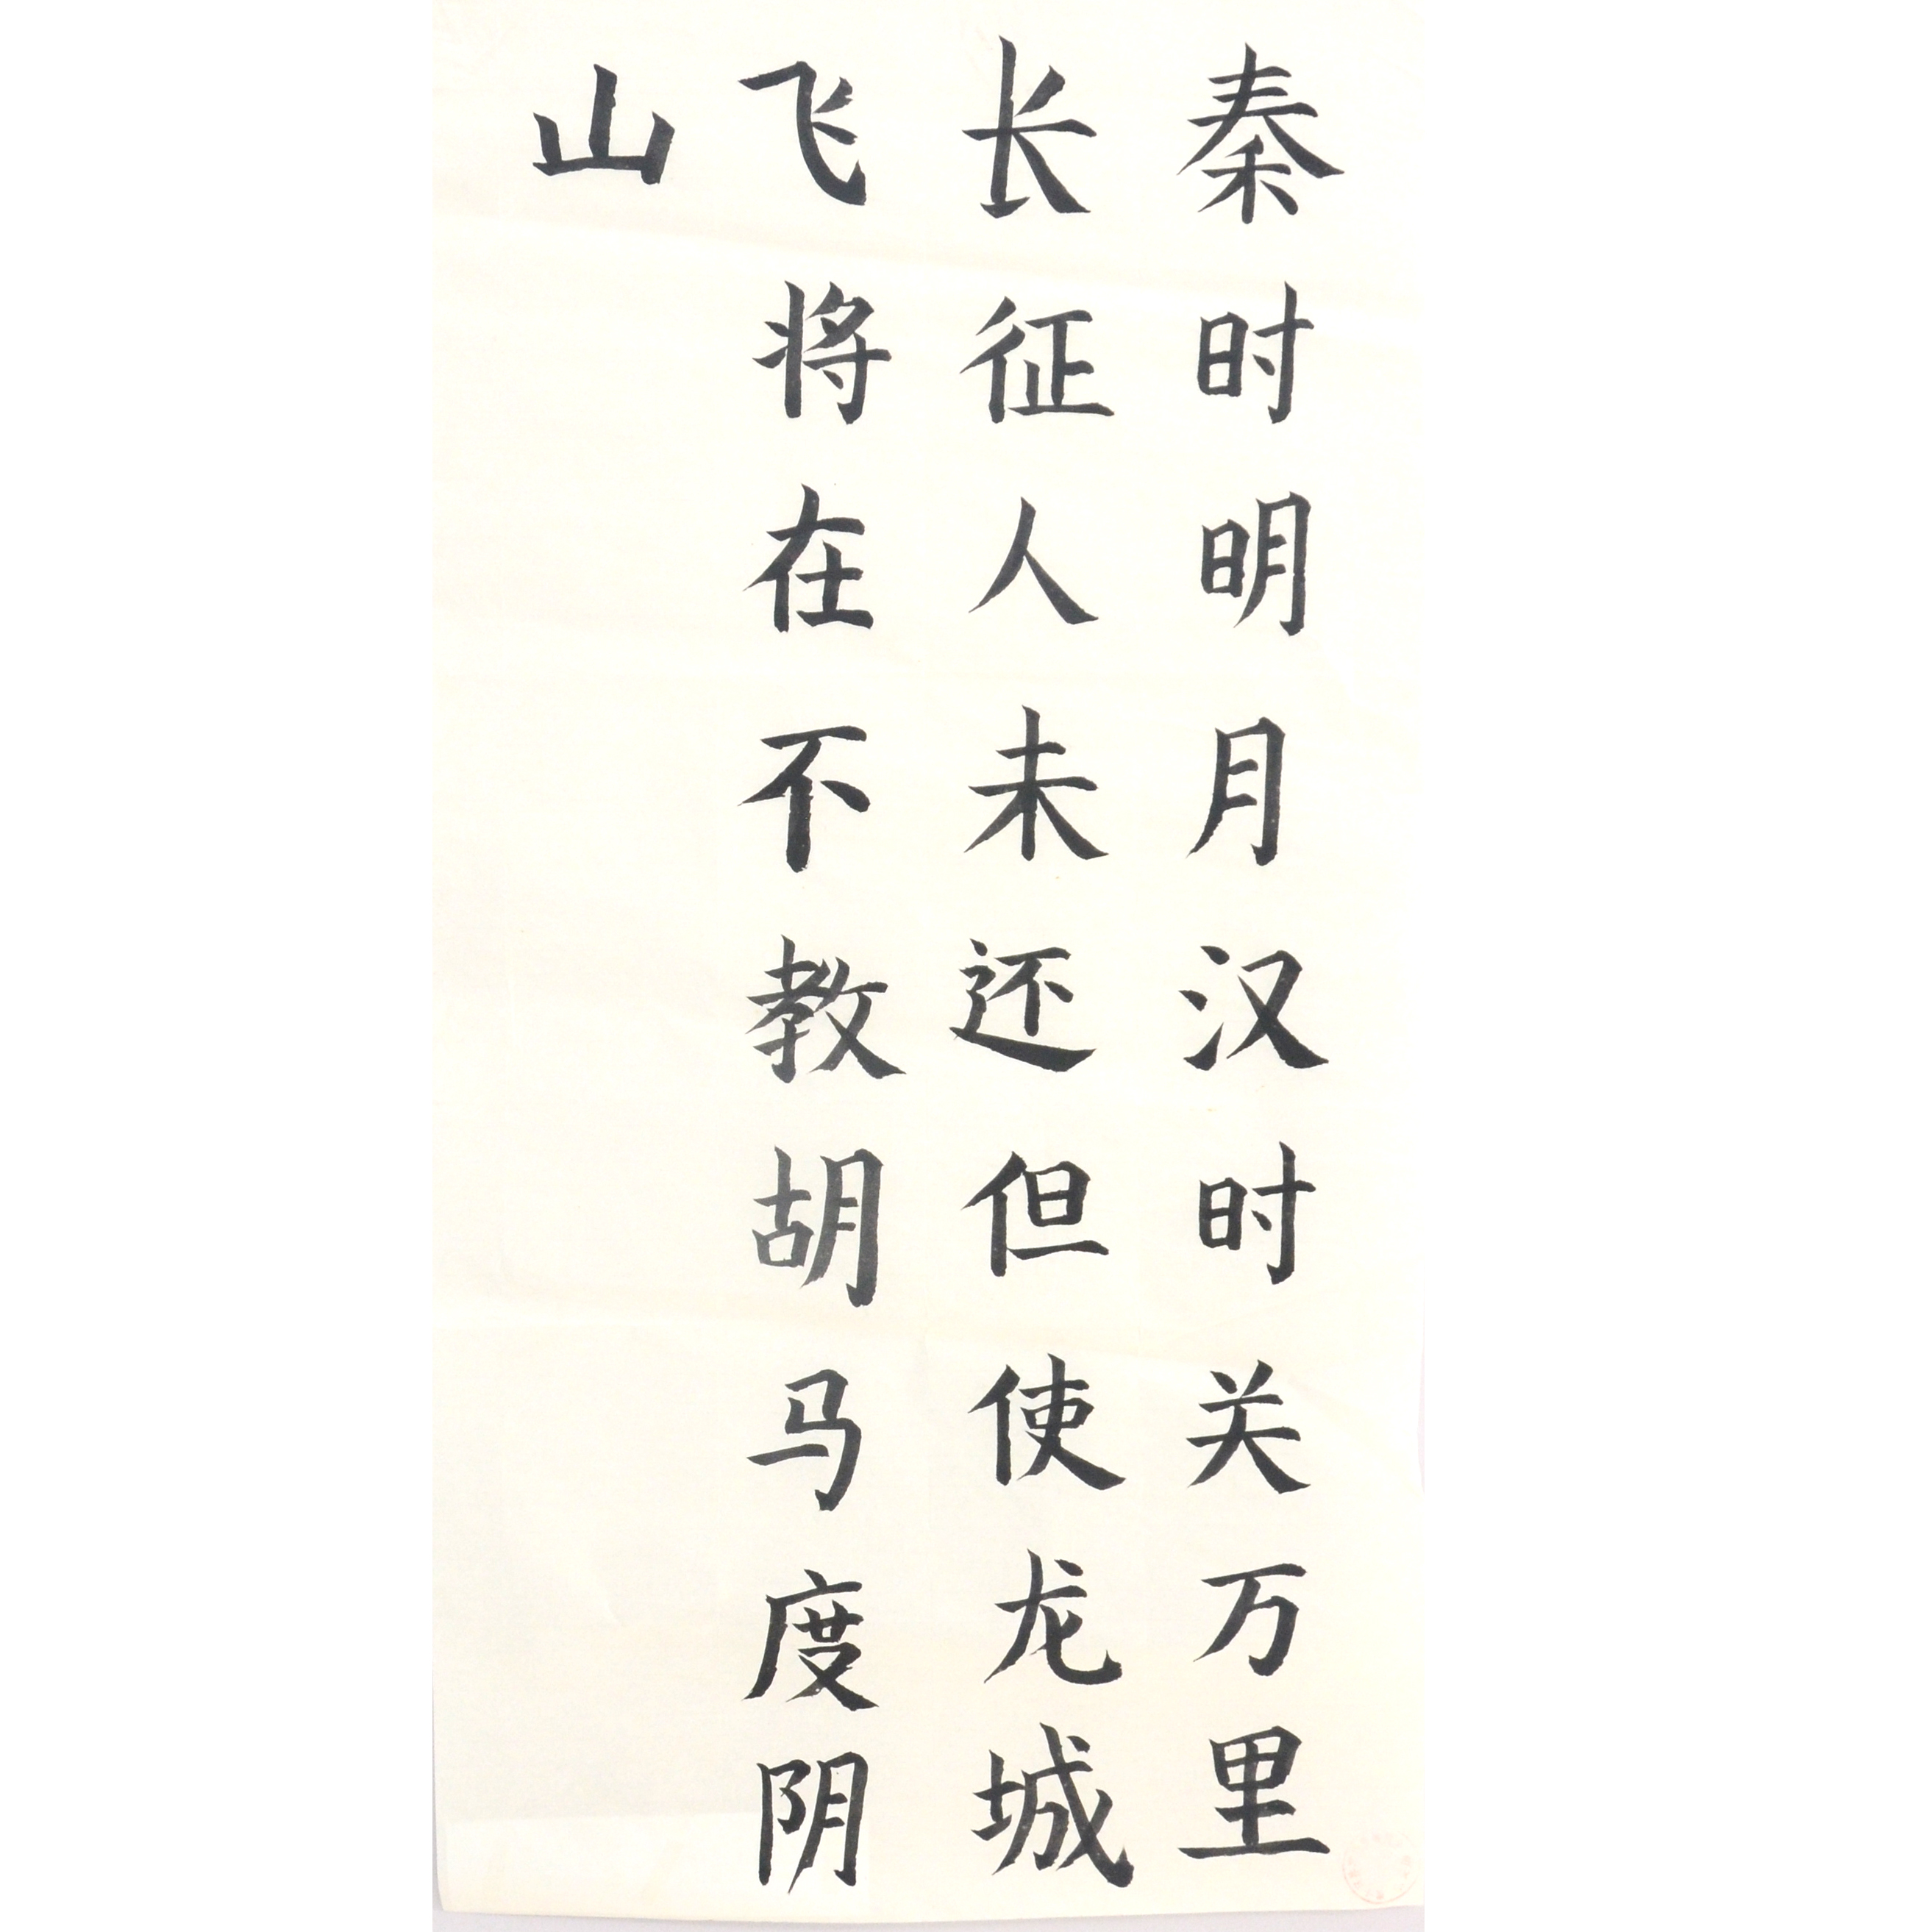 秦时明月汉时关万里
长征人未还但使龙城
飞将在不教胡马度阴
山